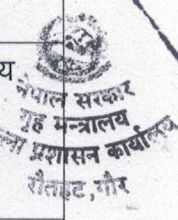 य
नेपाल सरकार
गृह मन्त्रालय
प्रशासन कार्यालय
रौतहट, गौर